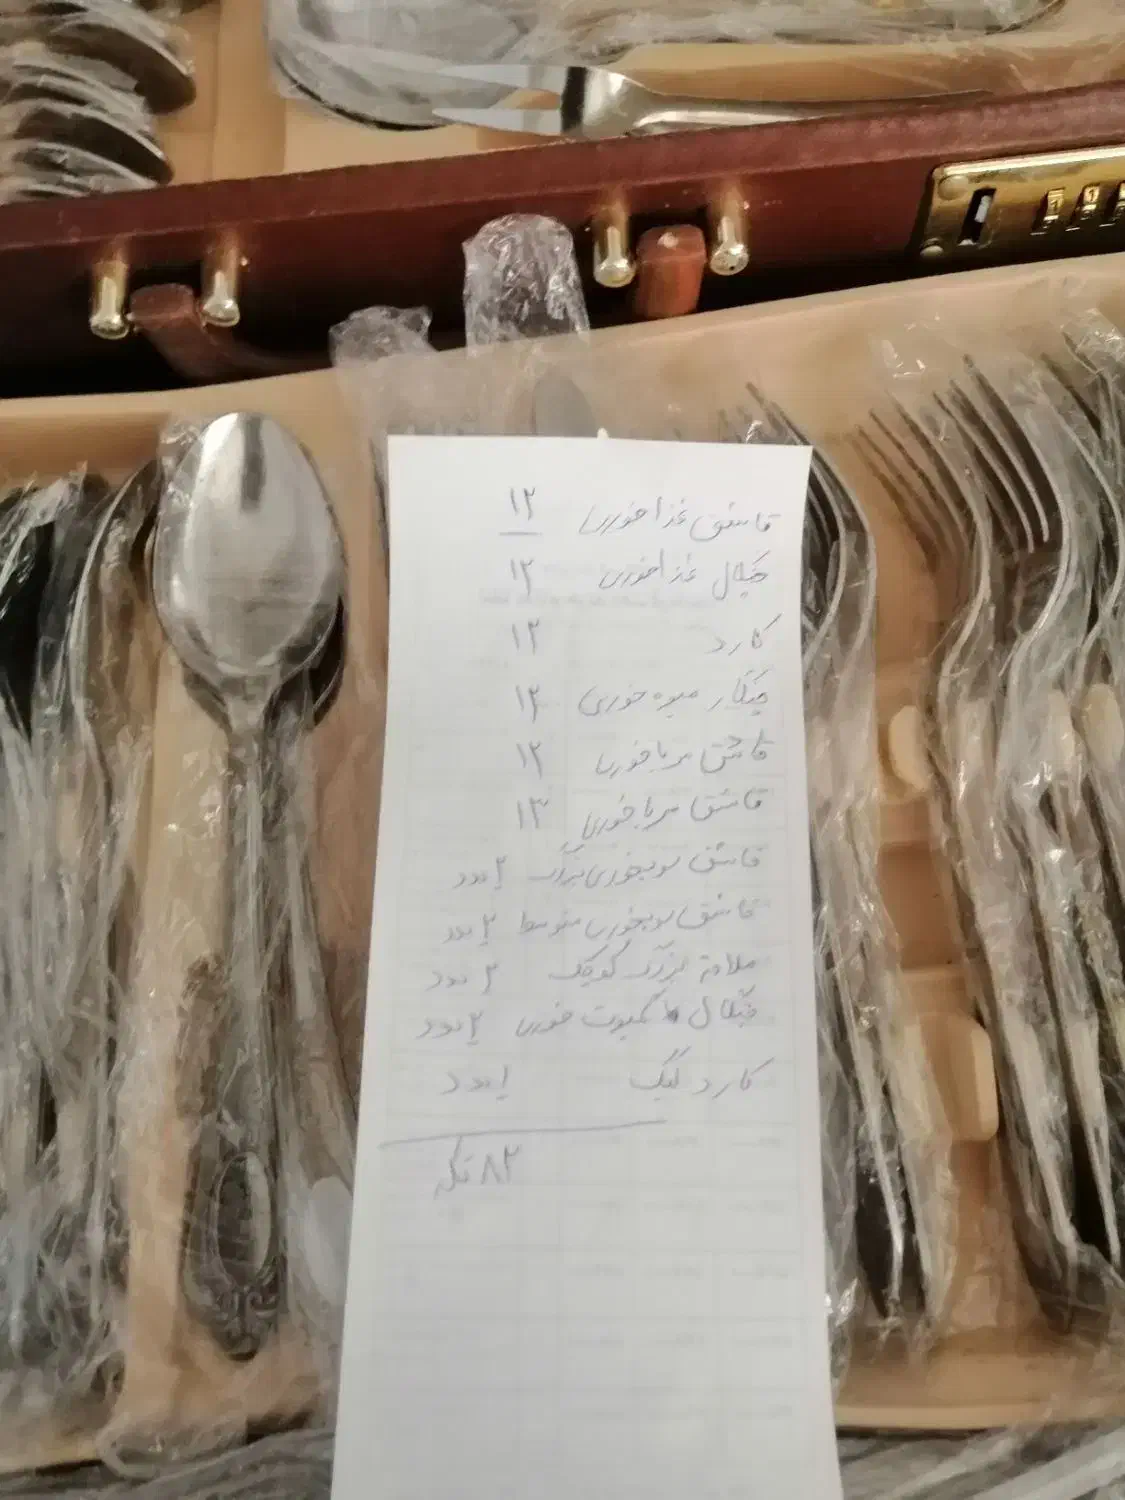 قاشق غذاخوری ۱۲
چنگال غذاخوری ۱۲
کارد ۱۲
چنگال میوه خوری ۱۲
قاشق مرباخوری ۱۲
قاشق مرباخوری ۱۳
قاشق سوپخوری بزرگ ۲ عدد
قاشق سوپخوری متوسط ۲ عدد
ملاقه بزرگ کوچک ۲ عدد
چنگال کمپوت خوری ۲ عدد
کارد کیک ۱ عدد
۸۲ تکه